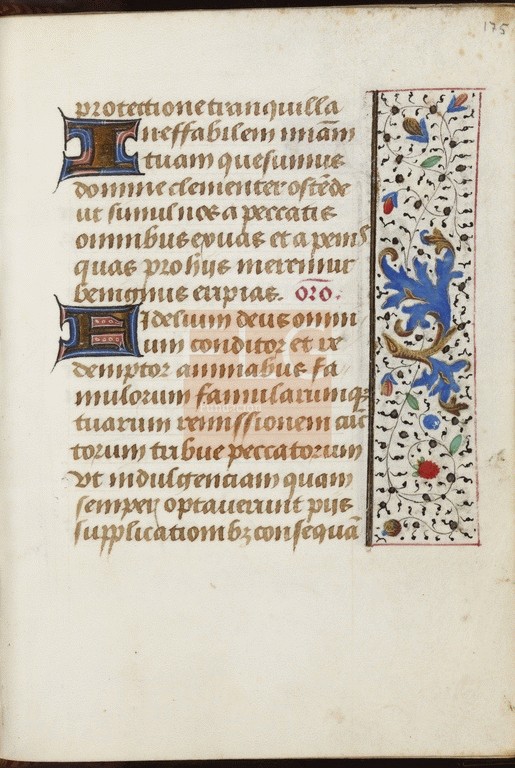 175
protectione tranquilla
Ineffabilem miãm
tuam quesumus
domine clementer ostẽde
ut simul nos a peccatis
omnibus exuas et a penis
quas pro hijs meremur
benignus eripias. oro.
Fidelium deus omni
um conditor et re
demptor animabus fa
mulorum famularumqz
tuarum remissionem cūc
torum tribue peccatorum
Vt indulgenciam quam
semper optauerunt pijs
supplicationibz consequã